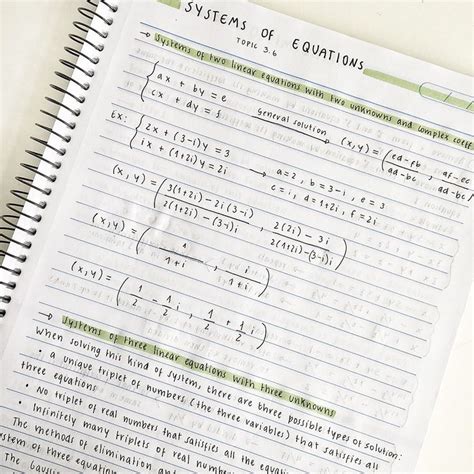 SYSTEMS OF EQUATIONS
TOPIC 3.6
→ Systems of two linear equations with two unknowns and complex coeff
{ax + by = e
cx + dy = f
General solution → (x,y) = (ed-fb/ad-bc, af-ec/ad-bc)
Ex: {2x + (3-i)y = 3
ix + (1+2i)y = 2i
→ a=2, b=3-i, e=3
c=i, d=1+2i, f=2i
(x,y) = (3(1+2i)-2i(3-i)/2(1+2i)-(3-i)i, 2(2i)-3i/2(1+2i)-(3-i)i)
(x,y) = (1/1+i, i/1+i)
(x,y) = (1/2 - 1/2 i, 1/2 + 1/2 i)
→ Systems of three linear equations with three unknowns
When solving this kind of system, there are three possible types of solution:
• a unique triplet of numbers (the three variables) that satisfies all
three equations
• No triplet of real numbers that satisfies all the equa
• Infinitely many triplets of real numbers that satisfy
The methods of elimination and
stem of three equation
The Gauss